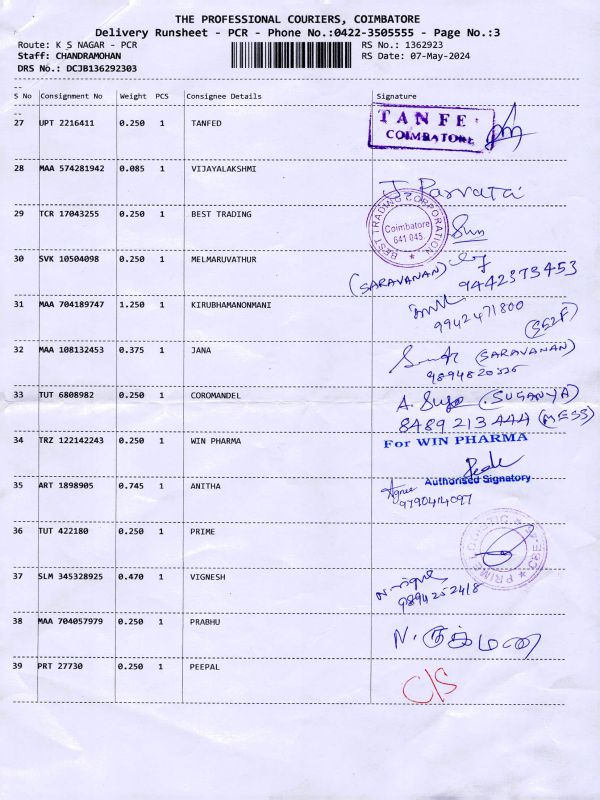 THE PROFESSIONAL COURIERS, COIMBATORE
Delivery Runsheet - PCR - Phone No.:0422-3505555 - Page No.:3
Route: K S NAGAR - PCR RS No.: 1362923
Staff: CHANDRAMOHAN RS Date: 07-May-2024
DRS No.: DCJB136292303
S No Consignment No Weight PCS Consignee Details Signature
27 UPT 2216411 0.250 1 TANFED
TANFE
COIMBATORE
28 MAA 574281942 0.085 1 VIJAYALAKSHMI
J. Parvatai
29 TCR 17043255 0.250 1 BEST TRADING
BEST TRADING CORPORATION
Coimbatore
641 045.
30 SVK 10504098 0.250 1 MELMARUVATHUR
(SARAVANAN)
9442373453
31 MAA 704189747 1.250 1 KIRUBHAMANONMANI
9942471800
32 MAA 108132453 0.375 1 JANA
(SARAVANAN)
33 TUT 6808982 0.250 1 COROMANDEL
A. (SUGANYA)
8489 213 444 (MESS)
34 TRZ 122142243 0.250 1 WIN PHARMA
For WIN PHARMA
Authorised Signatory
35 ART 1898905 0.745 1 ANITHA
36 TUT 422180 0.250 1 PRIME
PRIME LOGISTIC
37 SLM 345328925 0.470 1 VIGNESH
9894252418
38 MAA 704057979 0.250 1 PRABHU
N.
39 PRT 27730 0.250 1 PEEPAL
C/S